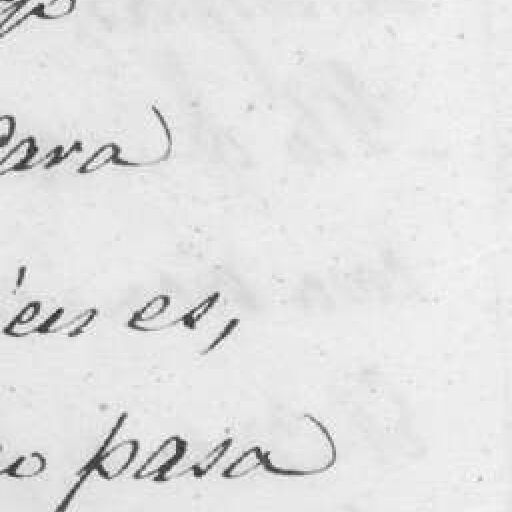 cara
ien es,
o pasa